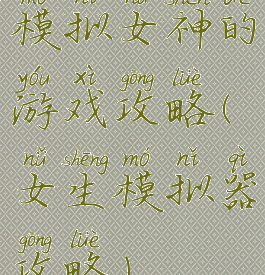 mó nǐ nǚ shén de
模拟女神的
yóu xì gōng lüè
游戏攻略(
nǚ shēng mó nǐ qì
女生模拟器
gōng lüè
攻略)